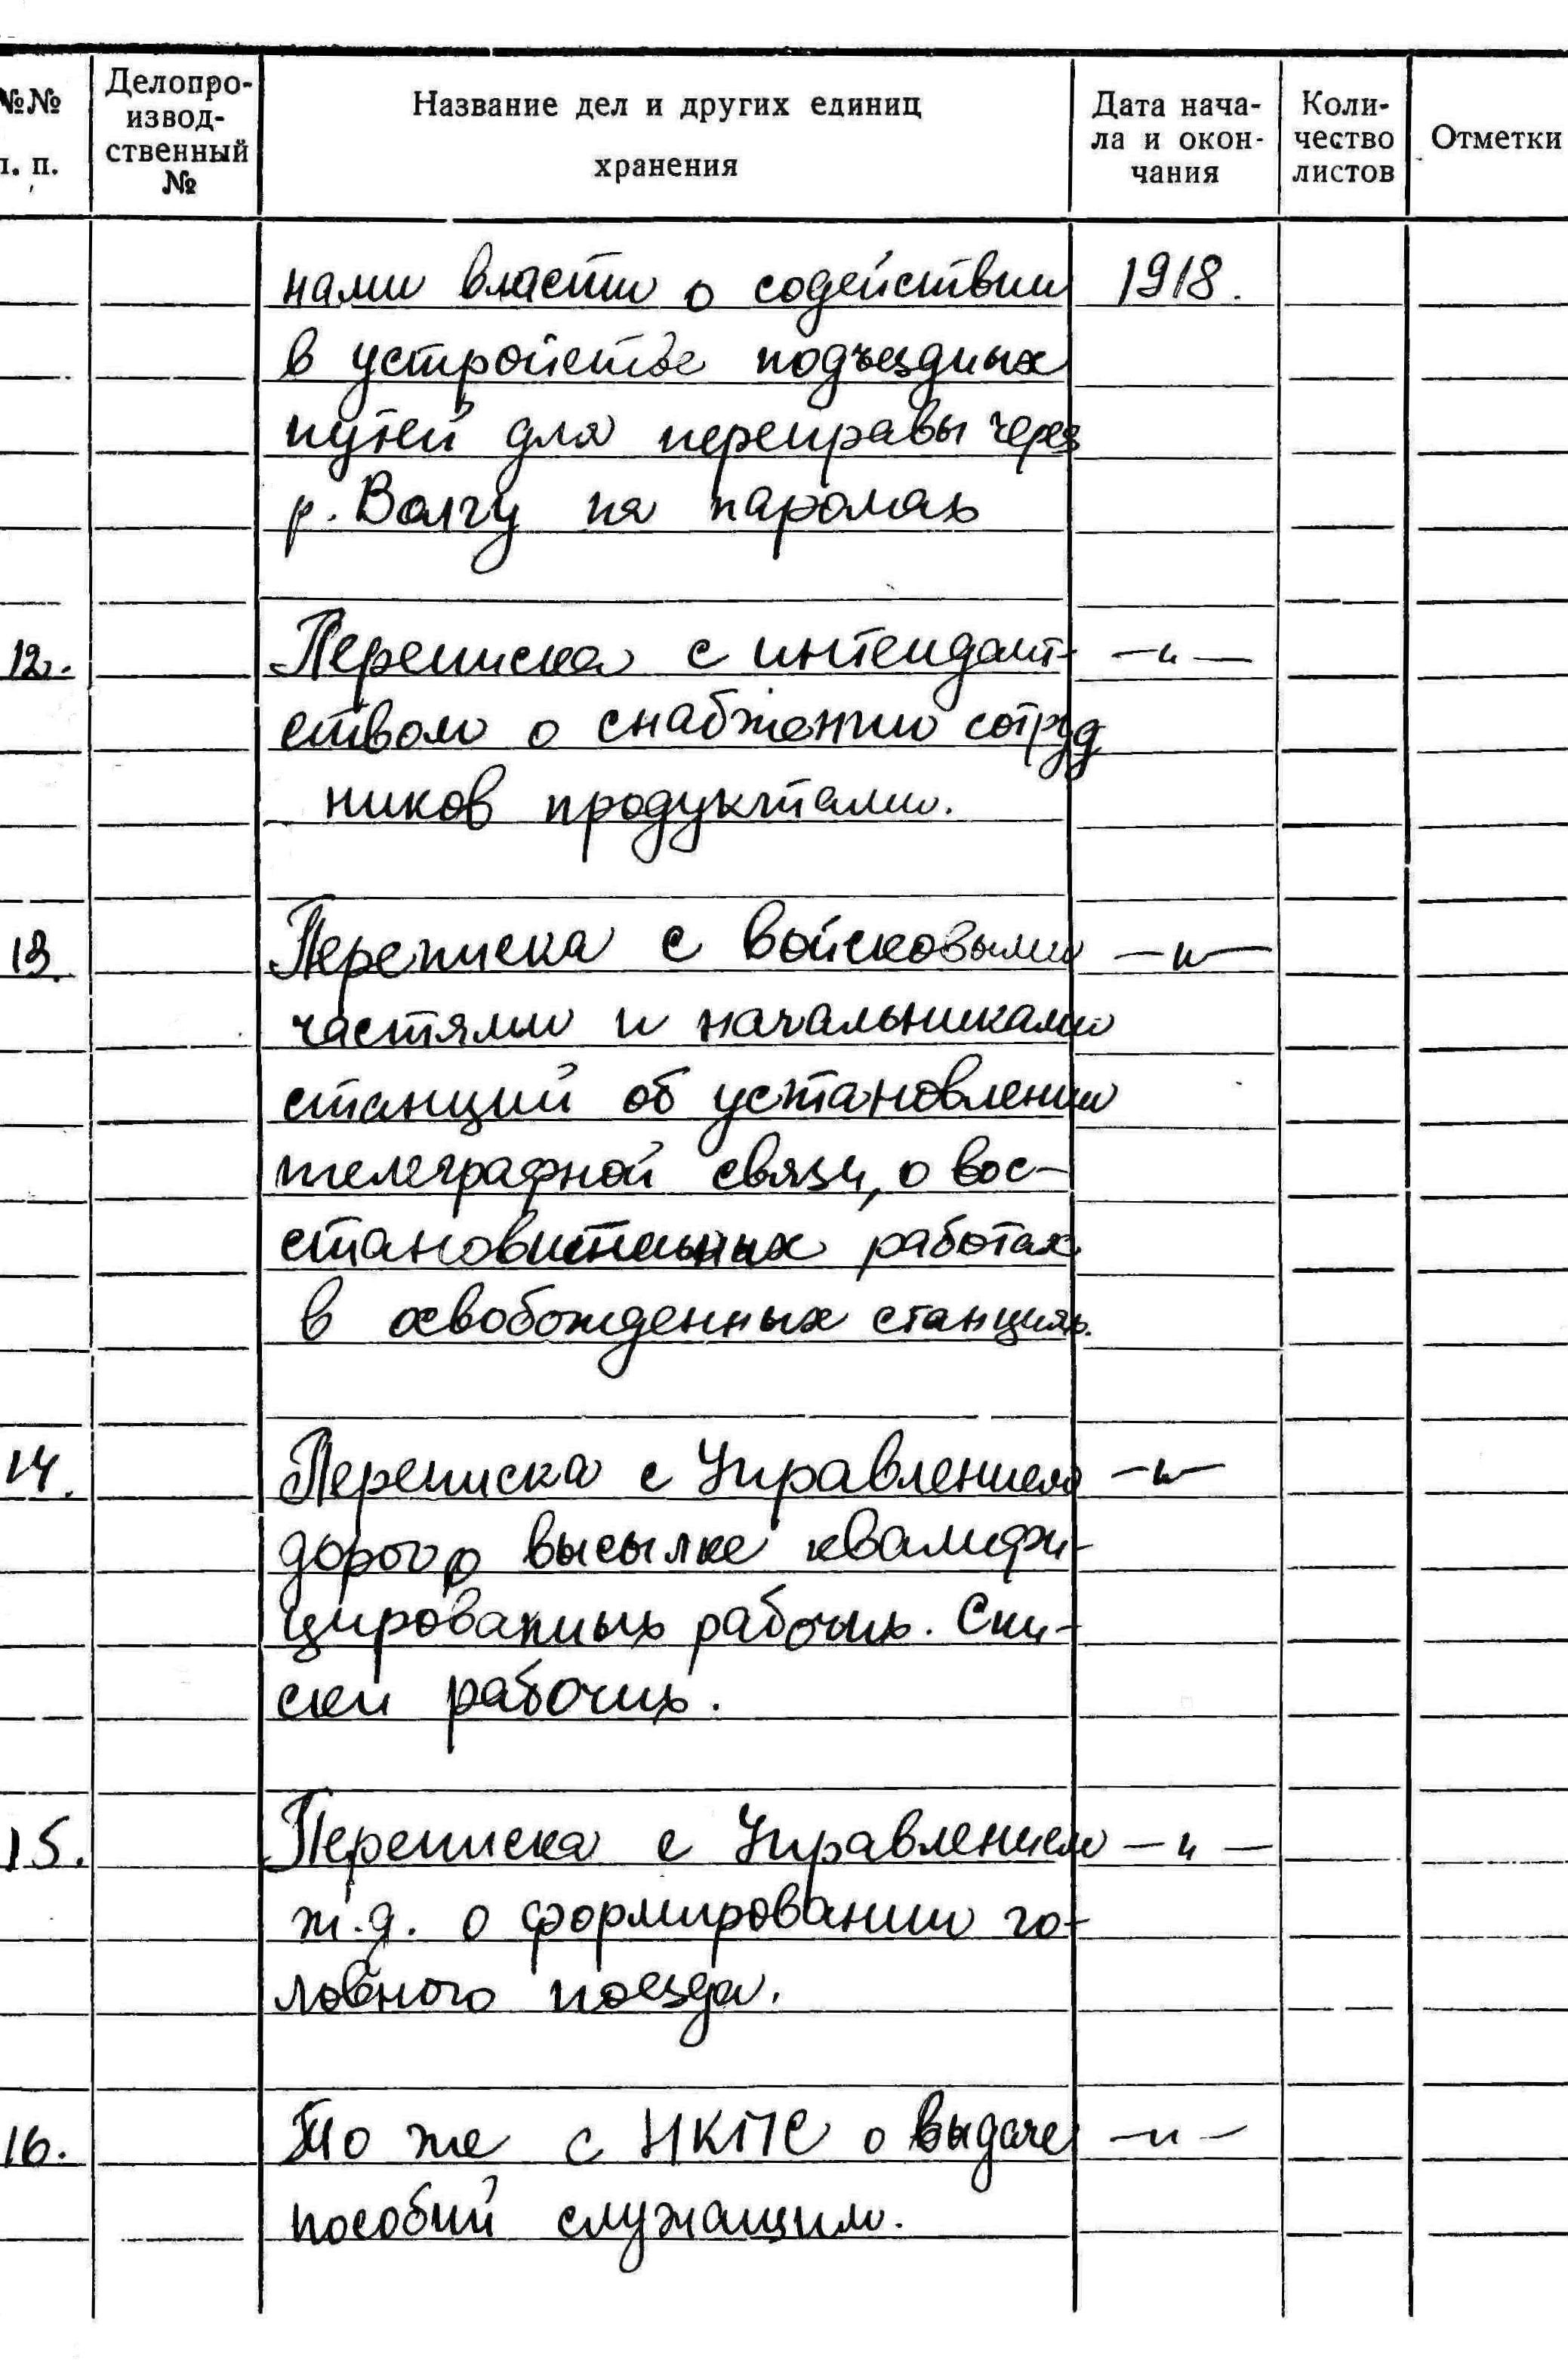 №№ Делопро- Название дел и других единиц Дата нача- Коли- Отметки
извод- ла и окон- чество
п. п. ственный хранения чания листов
№
нами власти о содействии 1918.
в устройстве подъездных
путей для переправы через
р. Волгу на паромах
12. Переписка с интендант- —„—
ством о снабжении сотруд
ников продуктами.
13. Переписка с войсковыми —„—
частями и начальниками
станций об установлении
телеграфной связи, о вос-
становительных работах
в освобожденных станциях.
14. Переписка с Управлением —„—
дорог о высылке квалифи-
цированных рабочих. Спи-
ски рабочих.
15. Переписка с Управлением —„—
ж.д. о формировании го-
ловного поезда.
16. То же с НКПС о выдаче —„—
пособий служащим.